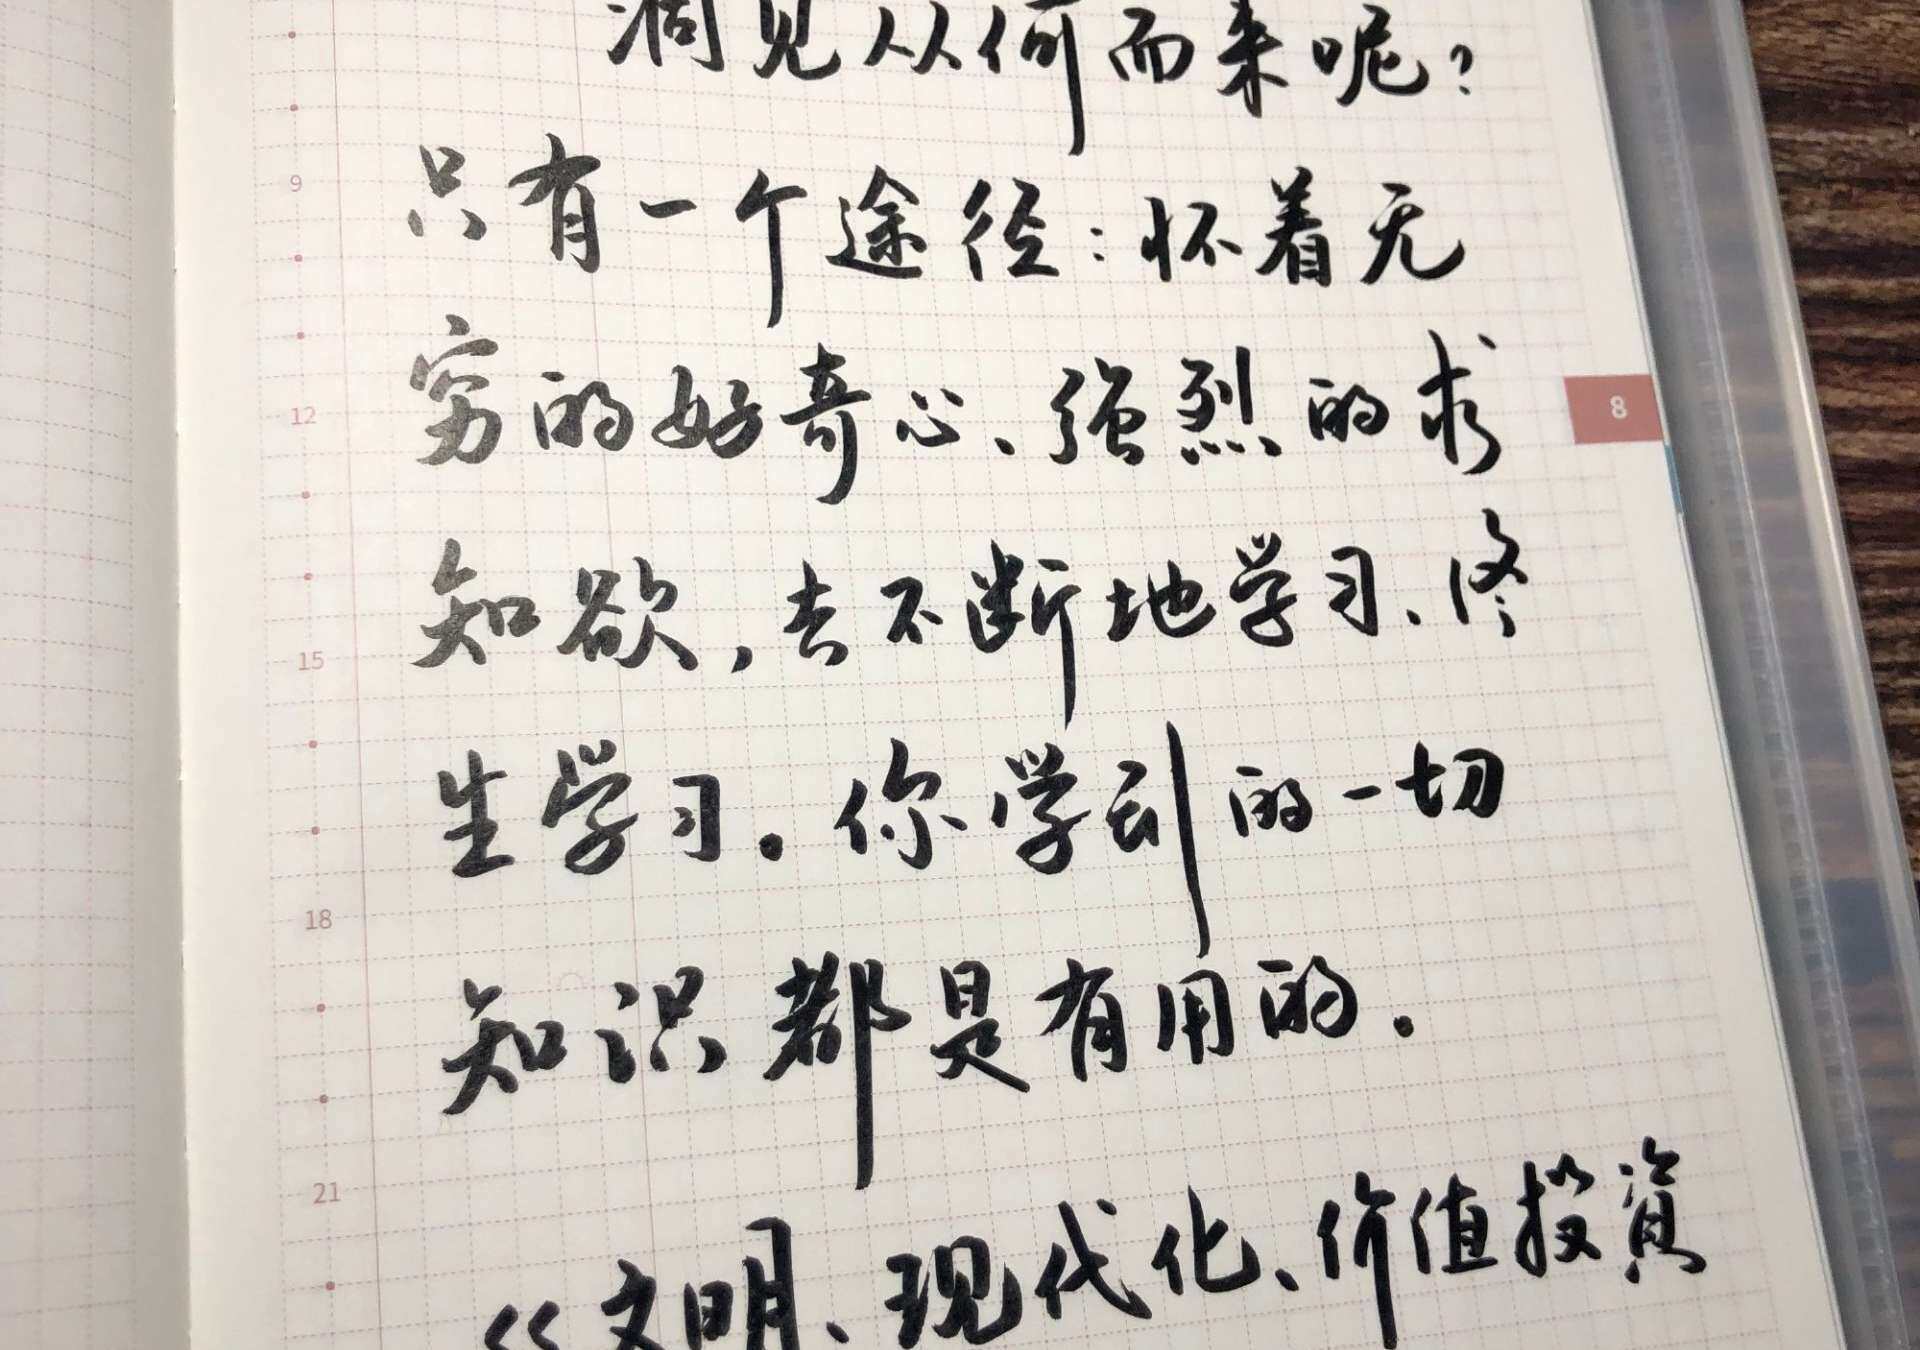 洞见从何而来呢?
只有一个途径:怀着无
穷的好奇心、强烈的求
知欲,去不断地学习、终
生学习。你学到的一切
知识都是有用的.
《文明、现代化、价值投资
9
12
15
18
21
8